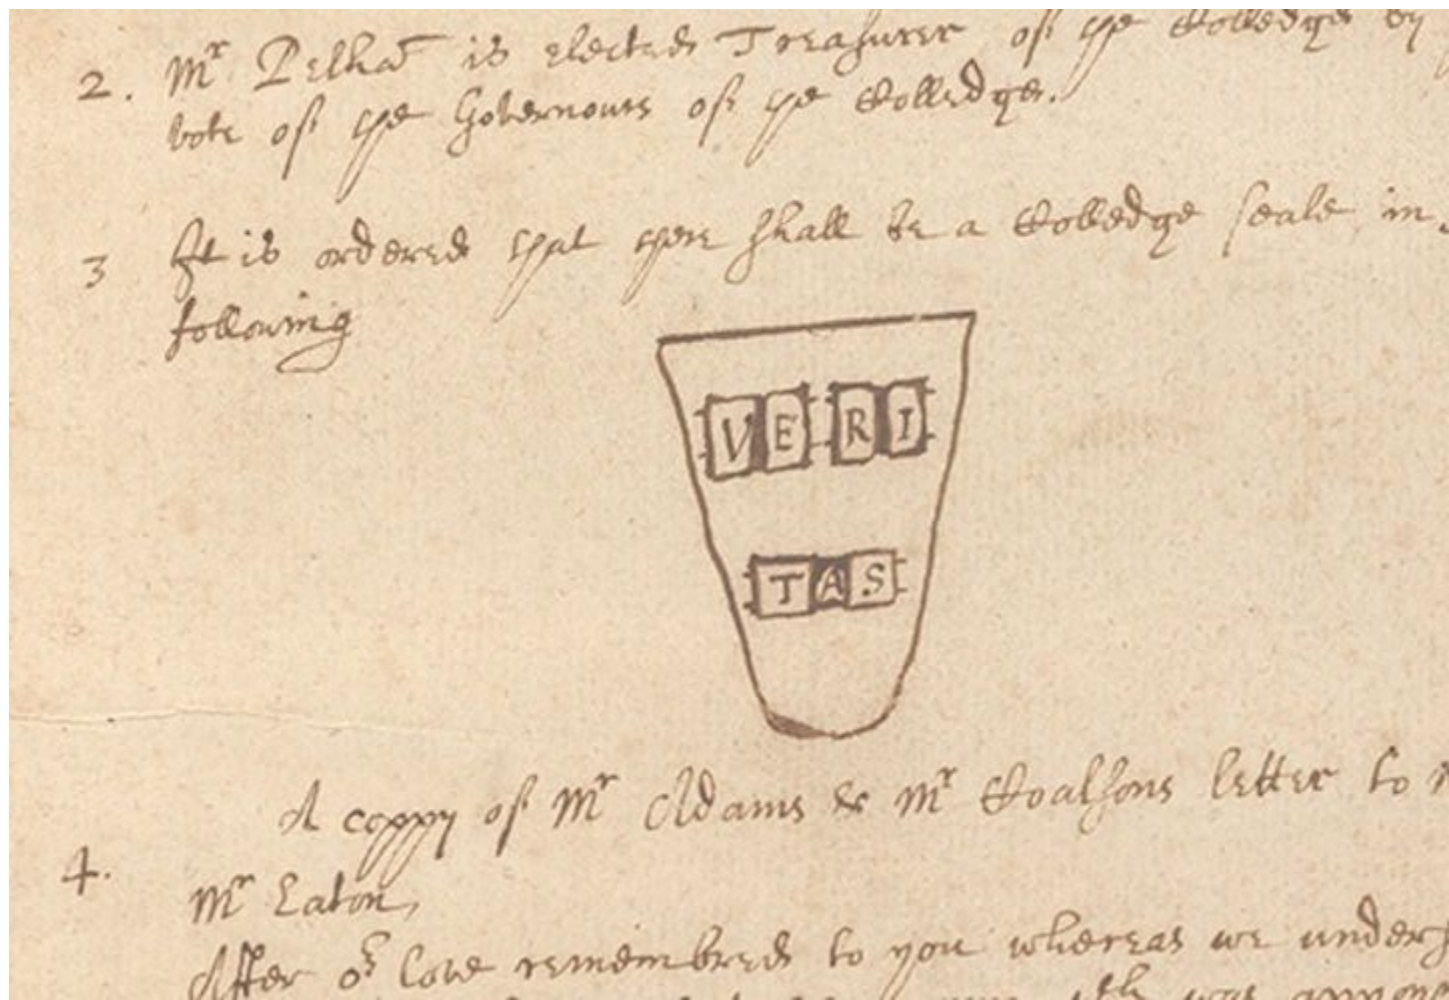 2. Mr Pelhā is elected Treasurer of ye Colledge by
vote of the Governours of ye Colledge.
3 It is ordered that there shall be a Colledge seale in
following
VE RI
TAS
A coppy of Mr Adams & Mr Coalsons letter to
4.
Mr Eaton,
After or love remembred to you whereas we under